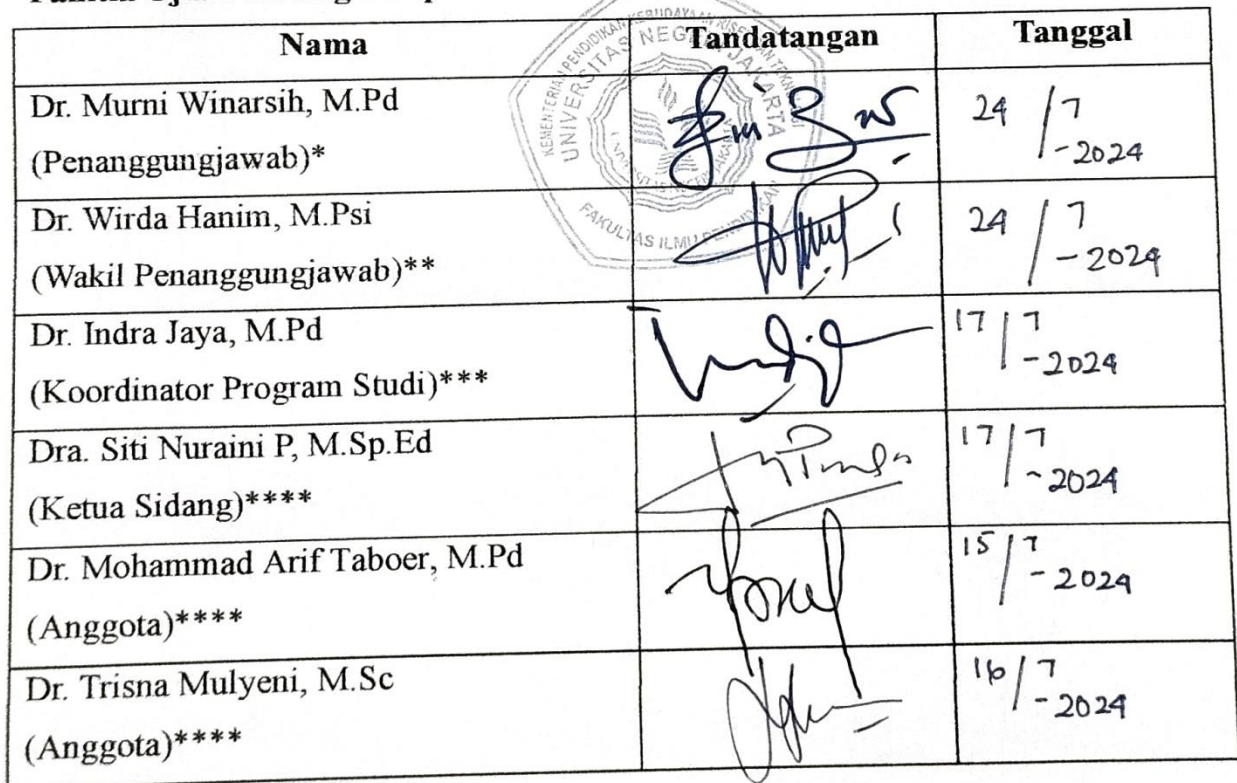 Nama Tandatangan Tanggal
Dr. Murni Winarsih, M.Pd
(Penanggungjawab)*
24/7-2024
Dr. Wirda Hanim, M.Psi
(Wakil Penanggungjawab)**
24/7-2024
Dr. Indra Jaya, M.Pd
(Koordinator Program Studi)***
17/7-2024
Dra. Siti Nuraini P, M.Sp.Ed
(Ketua Sidang)****
17/7-2024
Dr. Mohammad Arif Taboer, M.Pd
(Anggota)****
15/7-2024
Dr. Trisna Mulyeni, M.Sc
(Anggota)****
16/7-2024
UNIVERSITAS NEGERI JAKARTA
FAKULTAS ILMU PENDIDIKAN